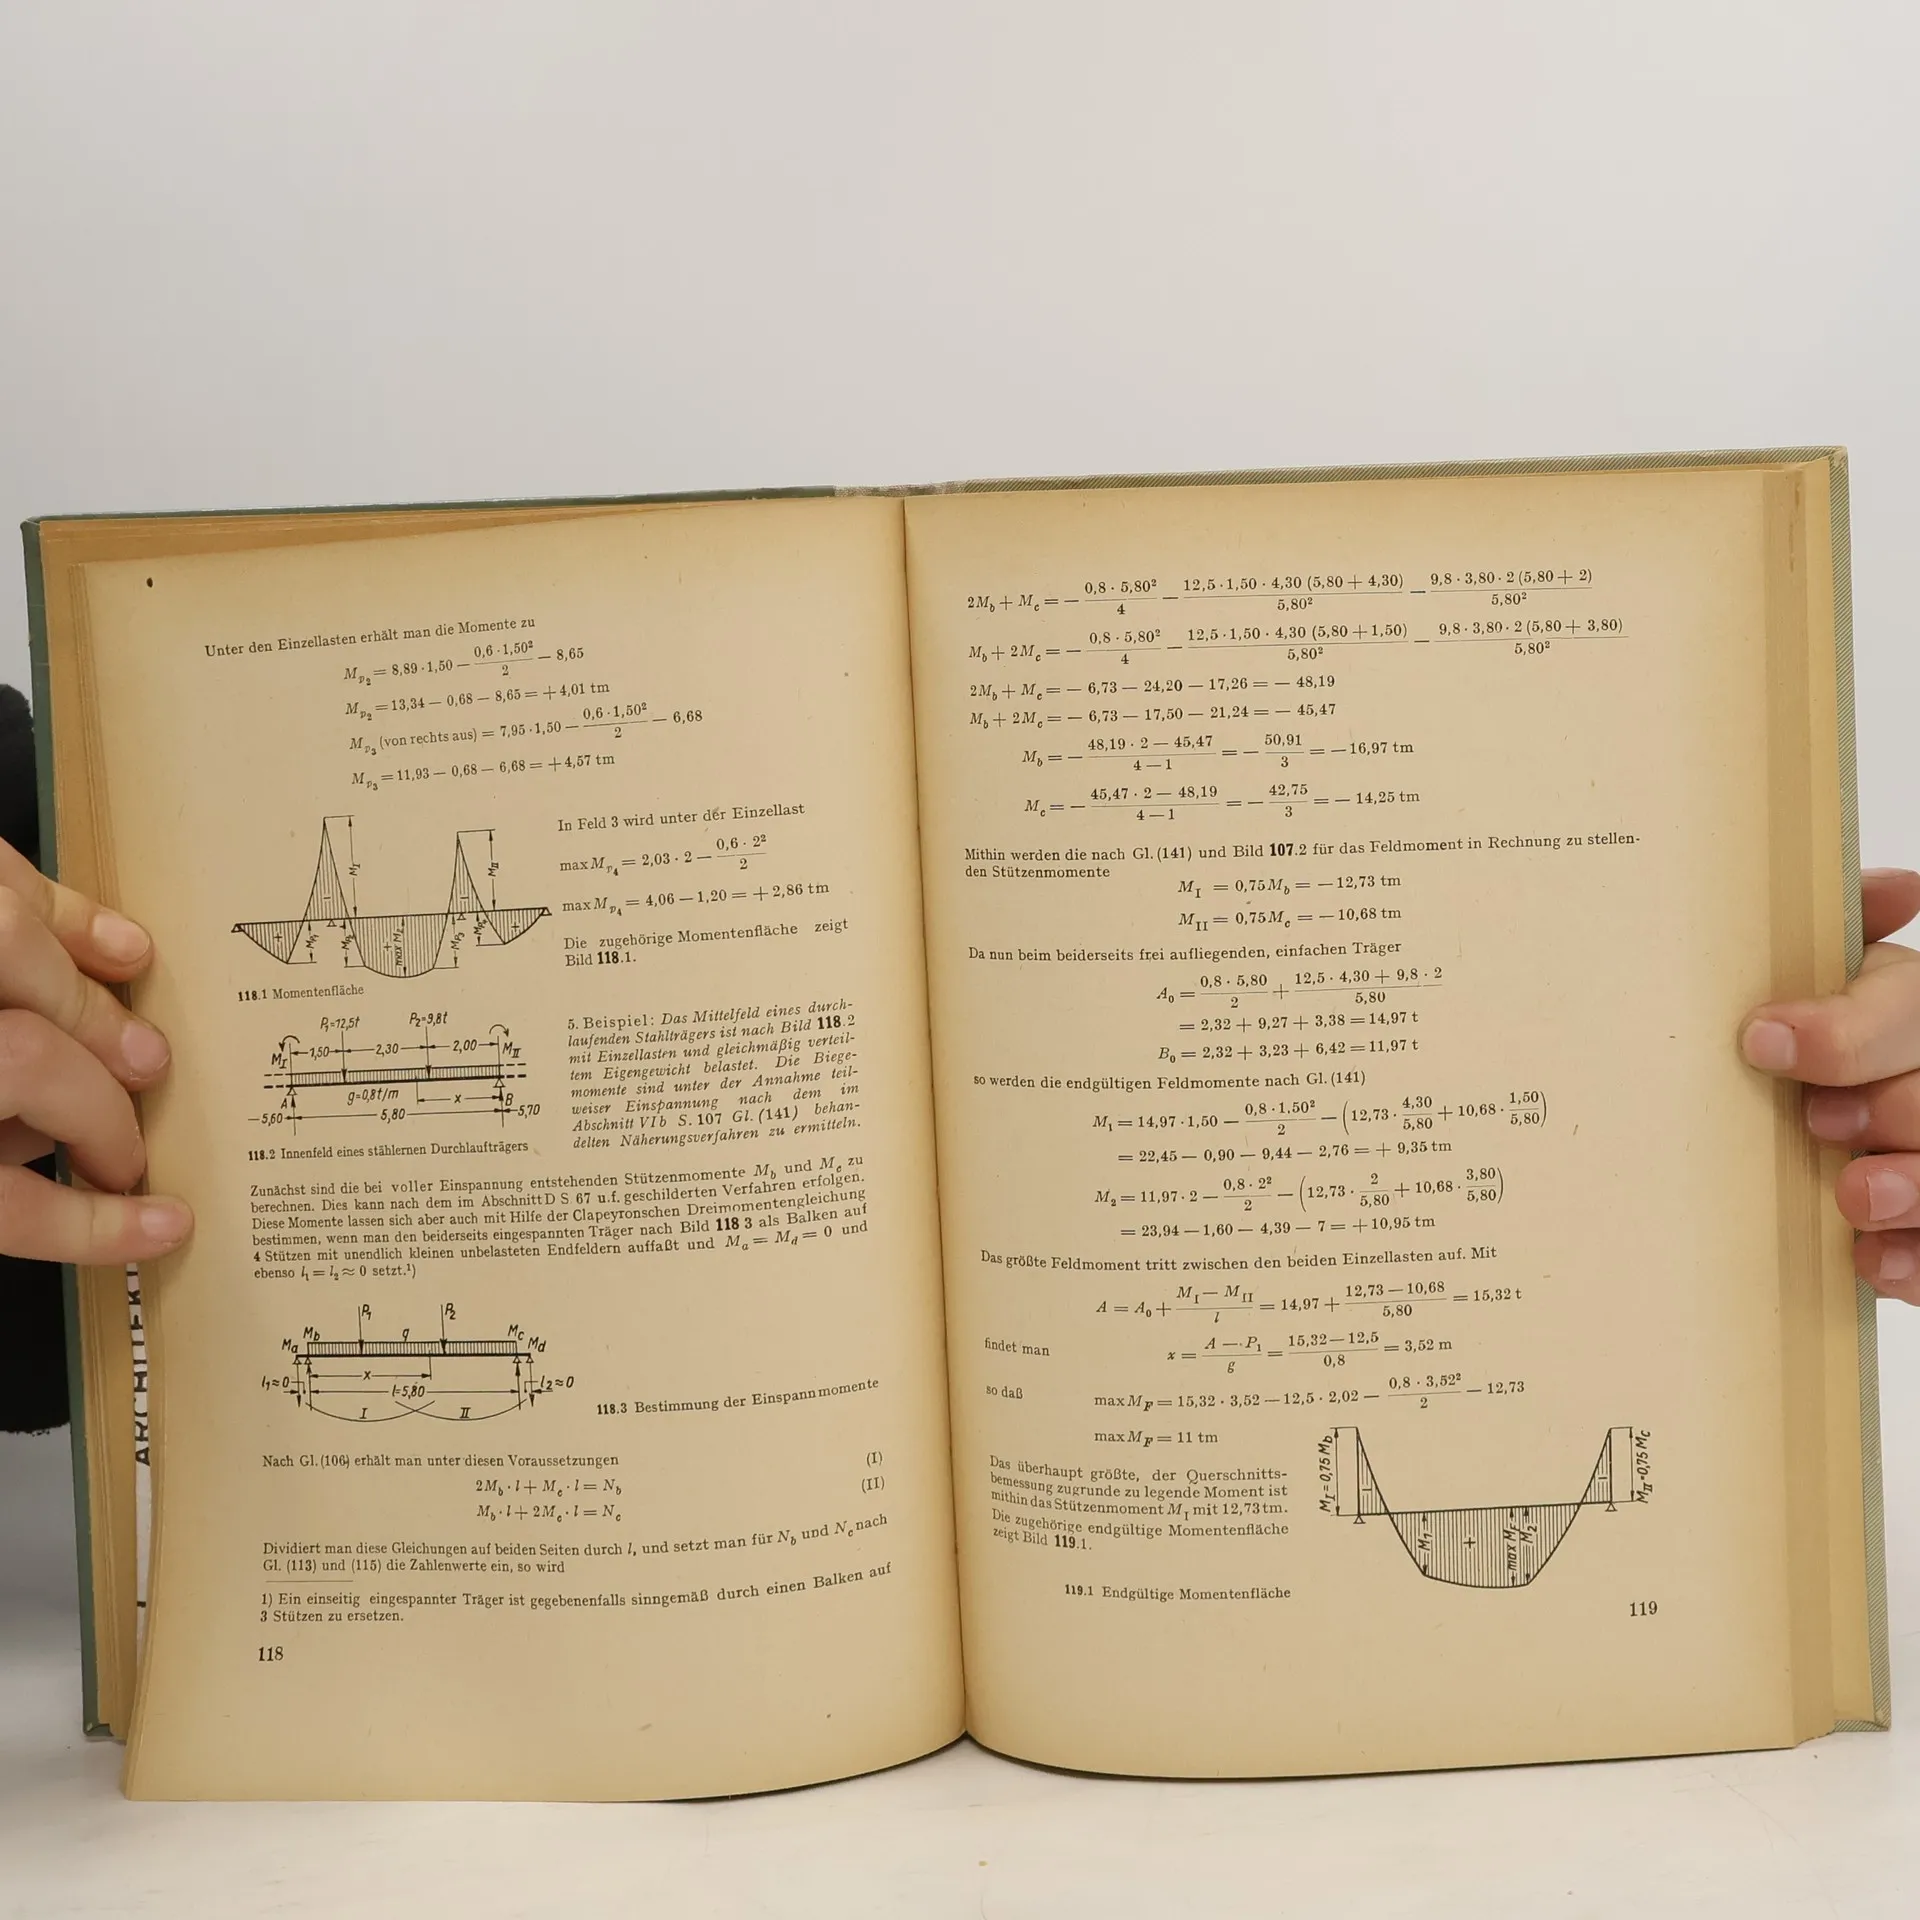 Unter den Einzellasten erhält man die Momente zu
M_p₂ = 8,89 · 1,50 − 0,6 · 1,50² / 2 − 8,65
M_p₂ = 13,34 − 0,68 − 8,65 = + 4,01 tm
M_p₃ (von rechts aus) = 7,95 · 1,50 − 0,6 · 1,50² / 2 − 6,68
M_p₃ = 11,93 − 0,68 − 6,68 = + 4,57 tm
In Feld 3 wird unter der Einzellast
max M_p₄ = 2,03 · 2 − 0,6 · 2² / 2
max M_p₄ = 4,06 − 1,20 = + 2,86 tm
Die zugehörige Momentenfläche zeigt
Bild 118.1.
M_I M_II
− −
+ M_P₁ M_P₂ + max M₂ M_P₃ M_P₄ +
118.1 Momentenfläche
P₁=12,5t P₂=9,8t
M_I 1,50 2,30 2,00 M_II
A g=0,8t/m x B
5,60 5,80 5,70
118.2 Innenfeld eines stählernen Durchlaufträgers
5. Beispiel: Das Mittelfeld eines durch-
laufenden Stahlträgers ist nach Bild 118.2
mit Einzellasten und gleichmäßig verteil-
tem Eigengewicht belastet. Die Biege-
momente sind unter der Annahme teil-
weiser Einspannung nach dem im
Abschnitt VI b S. 107 Gl. (141) behan-
delten Näherungsverfahren zu ermitteln.
Zunächst sind die bei voller Einspannung entstehenden Stützenmomente M_b und M_c zu
berechnen. Dies kann nach dem im Abschnitt D S 67 u.f. geschilderten Verfahren erfolgen.
Diese Momente lassen sich aber auch mit Hilfe der Clapeyronschen Dreimomentengleichung
bestimmen, wenn man den beiderseits eingespannten Träger nach Bild 118 3 als Balken auf
4 Stützen mit unendlich kleinen unbelasteten Endfeldern auffaßt und M_a = M_d = 0 und
ebenso l₁ = l₂ ≈ 0 setzt.¹)
P₁ P₂
Ma Mb q Mc Md
l₁≈0 x l₂≈0
l=5,80
I II
118.3 Bestimmung der Einspannmomente
Nach Gl. (106) erhält man unter diesen Voraussetzungen (I)
2M_b · l + M_c · l = N_b (II)
M_b · l + 2M_c · l = N_c
Dividiert man diese Gleichungen auf beiden Seiten durch l, und setzt man für N_b und N_c nach
Gl. (113) und (115) die Zahlenwerte ein, so wird
1) Ein einseitig eingespannter Träger ist gegebenenfalls sinngemäß durch einen Balken auf
3 Stützen zu ersetzen.
118
ARCHITEKT
2M_b + M_c = − 0,8 · 5,80² / 4 − 12,5 · 1,50 · 4,30 (5,80 + 4,30) / 5,80² − 9,8 · 3,80 · 2 (5,80 + 2) / 5,80²
M_b + 2M_c = − 0,8 · 5,80² / 4 − 12,5 · 1,50 · 4,30 (5,80 + 1,50) / 5,80² − 9,8 · 3,80 · 2 (5,80 + 3,80) / 5,80²
2M_b + M_c = − 6,73 − 24,20 − 17,26 = − 48,19
M_b + 2M_c = − 6,73 − 17,50 − 21,24 = − 45,47
M_b = − 48,19 · 2 − 45,47 / 4 − 1 = − 50,91 / 3 = − 16,97 tm
M_c = − 45,47 · 2 − 48,19 / 4 − 1 = − 42,75 / 3 = − 14,25 tm
Mithin werden die nach Gl. (141) und Bild 107.2 für das Feldmoment in Rechnung zu stellen-
den Stützenmomente
M_I = 0,75 M_b = − 12,73 tm
M_II = 0,75 M_c = − 10,68 tm
Da nun beim beiderseits frei aufliegenden, einfachen Träger
A₀ = 0,8 · 5,80 / 2 + 12,5 · 4,30 + 9,8 · 2 / 5,80
= 2,32 + 9,27 + 3,38 = 14,97 t
B₀ = 2,32 + 3,23 + 6,42 = 11,97 t
so werden die endgültigen Feldmomente nach Gl. (141)
M₁ = 14,97 · 1,50 − 0,8 · 1,50² / 2 − (12,73 · 4,30 / 5,80 + 10,68 · 1,50 / 5,80)
= 22,45 − 0,90 − 9,44 − 2,76 = + 9,35 tm
M₂ = 11,97 · 2 − 0,8 · 2² / 2 − (12,73 · 2 / 5,80 + 10,68 · 3,80 / 5,80)
= 23,94 − 1,60 − 4,39 − 7 = + 10,95 tm
Das größte Feldmoment tritt zwischen den beiden Einzellasten auf. Mit
A = A₀ + M_I − M_II / l = 14,97 + 12,73 − 10,68 / 5,80 = 15,32 t
findet man x = A − P₁ / g = 15,32 − 12,5 / 0,8 = 3,52 m
so daß max M_F = 15,32 · 3,52 − 12,5 · 2,02 − 0,8 · 3,52² / 2 − 12,73
max M_F = 11 tm
Das überhaupt größte, der Querschnitts-
bemessung zugrunde zu legende Moment ist
mithin das Stützenmoment M_I mit 12,73 tm.
Die zugehörige endgültige Momentenfläche
zeigt Bild 119.1.
M_I = 0,75 M_b M_II=0,75 M_c
− −
M₁ + max M_F M₂
119.1 Endgültige Momentenfläche
119